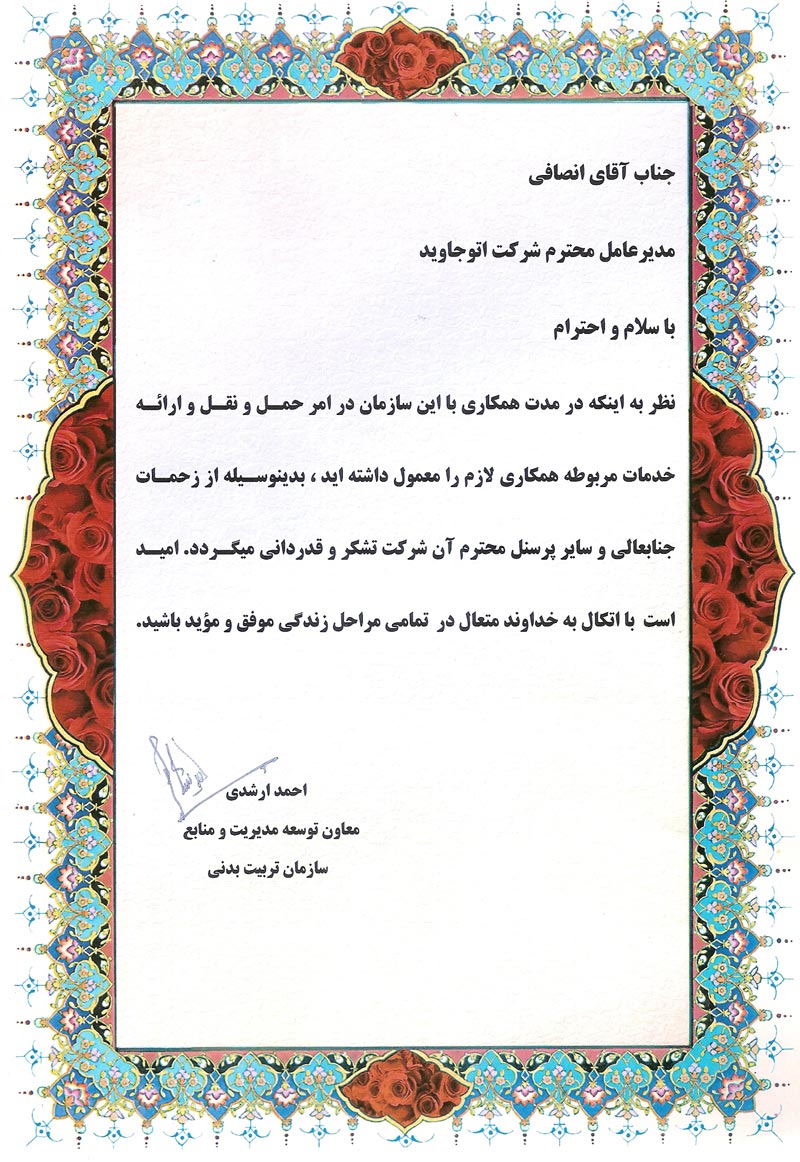 جناب آقای انصافی
مدیرعامل محترم شرکت اتوجاوید
با سلام و احترام
نظر به اینکه در مدت همکاری با این سازمان در امر حمل و نقل و ارائه
خدمات مربوطه همکاری لازم را معمول داشته اید ، بدینوسیله از زحمات
جنابعالی و سایر پرسنل محترم آن شرکت تشکر و قدردانی میگردد. امید
است با اتکال به خداوند متعال در تمامی مراحل زندگی موفق و مؤید باشید.
احمد ارشدی
معاون توسعه مدیریت و منابع
سازمان تربیت بدنی